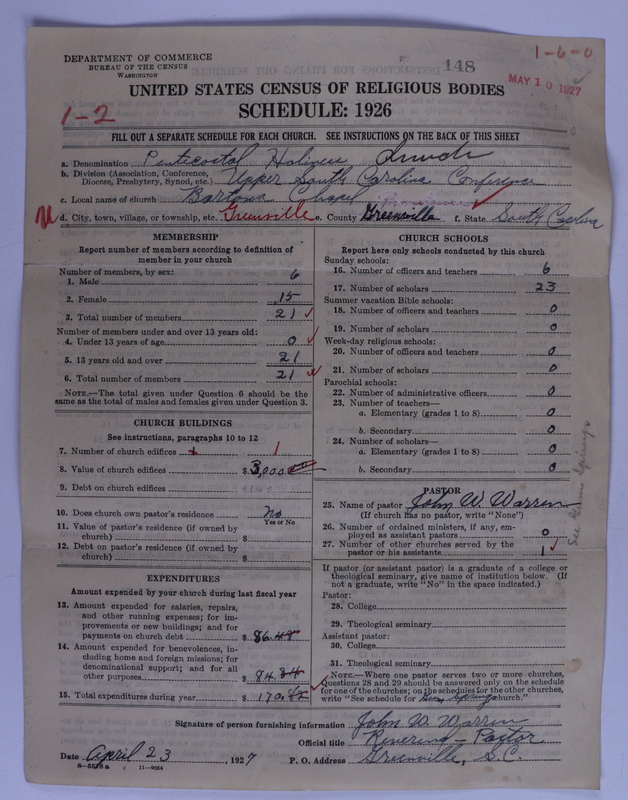 DEPARTMENT OF COMMERCE
BUREAU OF THE CENSUS
WASHINGTON
148
1-6-0
MAY 10 1927
UNITED STATES CENSUS OF RELIGIOUS BODIES
SCHEDULE: 1926
1-2
FILL OUT A SEPARATE SCHEDULE FOR EACH CHURCH. SEE INSTRUCTIONS ON THE BACK OF THIS SHEET
a. Denomination Pentecostal Holiness Church
b. Division (Association, Conference, Diocese, Presbytery, Synod, etc.) Upper South Carolina Conference
c. Local name of church Bartons Chapel
d. City, town, village, or township, etc. Greenville e. County Greenville f. State South Carolina
MEMBERSHIP
Report number of members according to definition of member in your church
Number of members, by sex:
1. Male 6
2. Female 15
3. Total number of members 21
Number of members under and over 13 years old:
4. Under 13 years of age 0
5. 13 years old and over 21
6. Total number of members 21
NOTE.—The total given under Question 6 should be the same as the total of males and females given under Question 3.
CHURCH BUILDINGS
See instructions, paragraphs 10 to 12
7. Number of church edifices 1
8. Value of church edifices $ 3,000.00
9. Debt on church edifices
10. Does church own pastor's residence? No
Yes or No
11. Value of pastor's residence (if owned by church) $
12. Debt on pastor's residence (if owned by church) $
EXPENDITURES
Amount expended by your church during last fiscal year
13. Amount expended for salaries, repairs, and other running expenses; for improvements or new buildings; and for payments on church debt $ 86.48
14. Amount expended for benevolences, including home and foreign missions; for denominational support; and for all other purposes $ 84.34
15. Total expenditures during year $ 170.82
CHURCH SCHOOLS
Report here only schools conducted by this church
Sunday schools:
16. Number of officers and teachers 6
17. Number of scholars 23
Summer vacation Bible schools:
18. Number of officers and teachers 0
19. Number of scholars 0
Week-day religious schools:
20. Number of officers and teachers 0
21. Number of scholars 0
Parochial schools:
22. Number of administrative officers 0
23. Number of teachers—
a. Elementary (grades 1 to 8) 0
b. Secondary 0
24. Number of scholars—
a. Elementary (grades 1 to 8) 0
b. Secondary 0
PASTOR
25. Name of pastor John W. Warren
(If church has no pastor, write "None")
26. Number of ordained ministers, if any, employed as assistant pastors 0
27. Number of other churches served by the pastor or his assistants 1
If pastor (or assistant pastor) is a graduate of a college or theological seminary, give name of institution below. (If not a graduate, write "No" in the space indicated.)
Pastor:
28. College
29. Theological seminary
Assistant pastor:
30. College
31. Theological seminary
NOTE.—Where one pastor serves two or more churches, Questions 28 and 29 should be answered only on the schedule for one of the churches; on the schedules for the other churches, write "See schedule for Springs church."
Signature of person furnishing information John W. Warren
Official title Reverend - Pastor
Date April 23, 1927 P. O. Address Greenville, S.C.
8—5518 a 11—9084